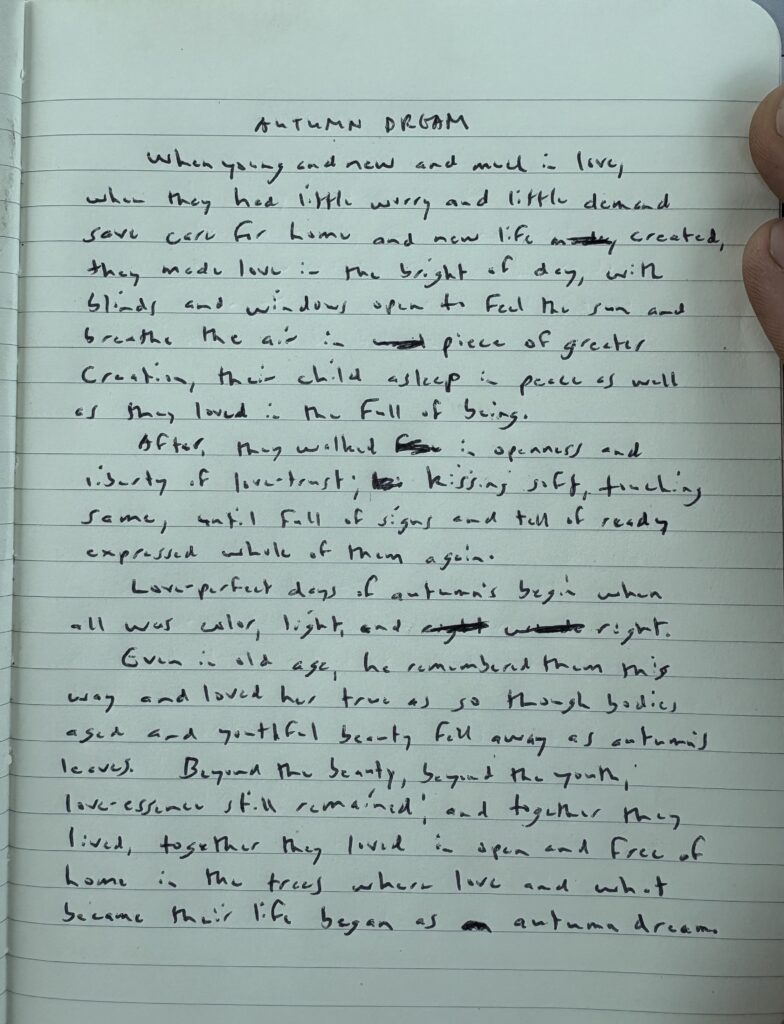 AUTUMN DREAM
When young and new and much in love,
when they had little worry and little demand
save care for home and new life created,
they made love in the bright of day, with
blinds and windows open to feel the sun and
breathe the air in piece of greater
Creation, their child asleep in peace as well
as they loved in the full of being.
After, they walked in openness and
liberty of love-trust; kissing soft, touching
same, until full of signs and tell of ready
expressed whole of them again.
Love-perfect days of autumn's begin when
all was color, light, and right.
Even in old age, he remembered them this
way and loved her true as so though bodies
aged and youthful beauty fell away as autumn's
leaves. Beyond the beauty, beyond the youth,
love-essence still remained; and together they
lived, together they loved in open and free of
home in the trees where love and what
became their life began as autumn dream.